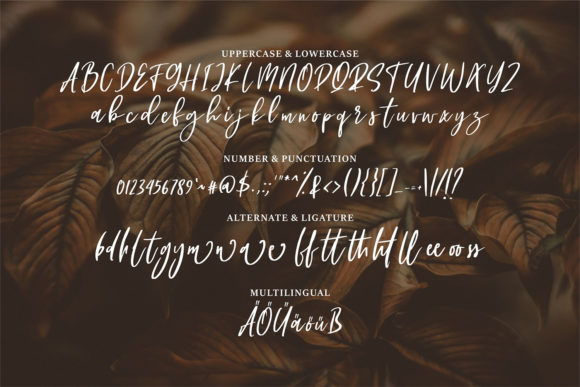 UPPERCASE & LOWERCASE
ABCDEFGHIJKLMNOPQRSTUVWXYZ
abcdefghijklmnopqrstuvwxyz
NUMBER & PUNCTUATION
0123456789`~#@$.,:;'"*^%&<>(){}[]_-=+\|/!?
ALTERNATE & LIGATURE
bdhltgymwave ff tt th ht ll ee oo ss
MULTILINGUAL
ÄÖÜäöüß